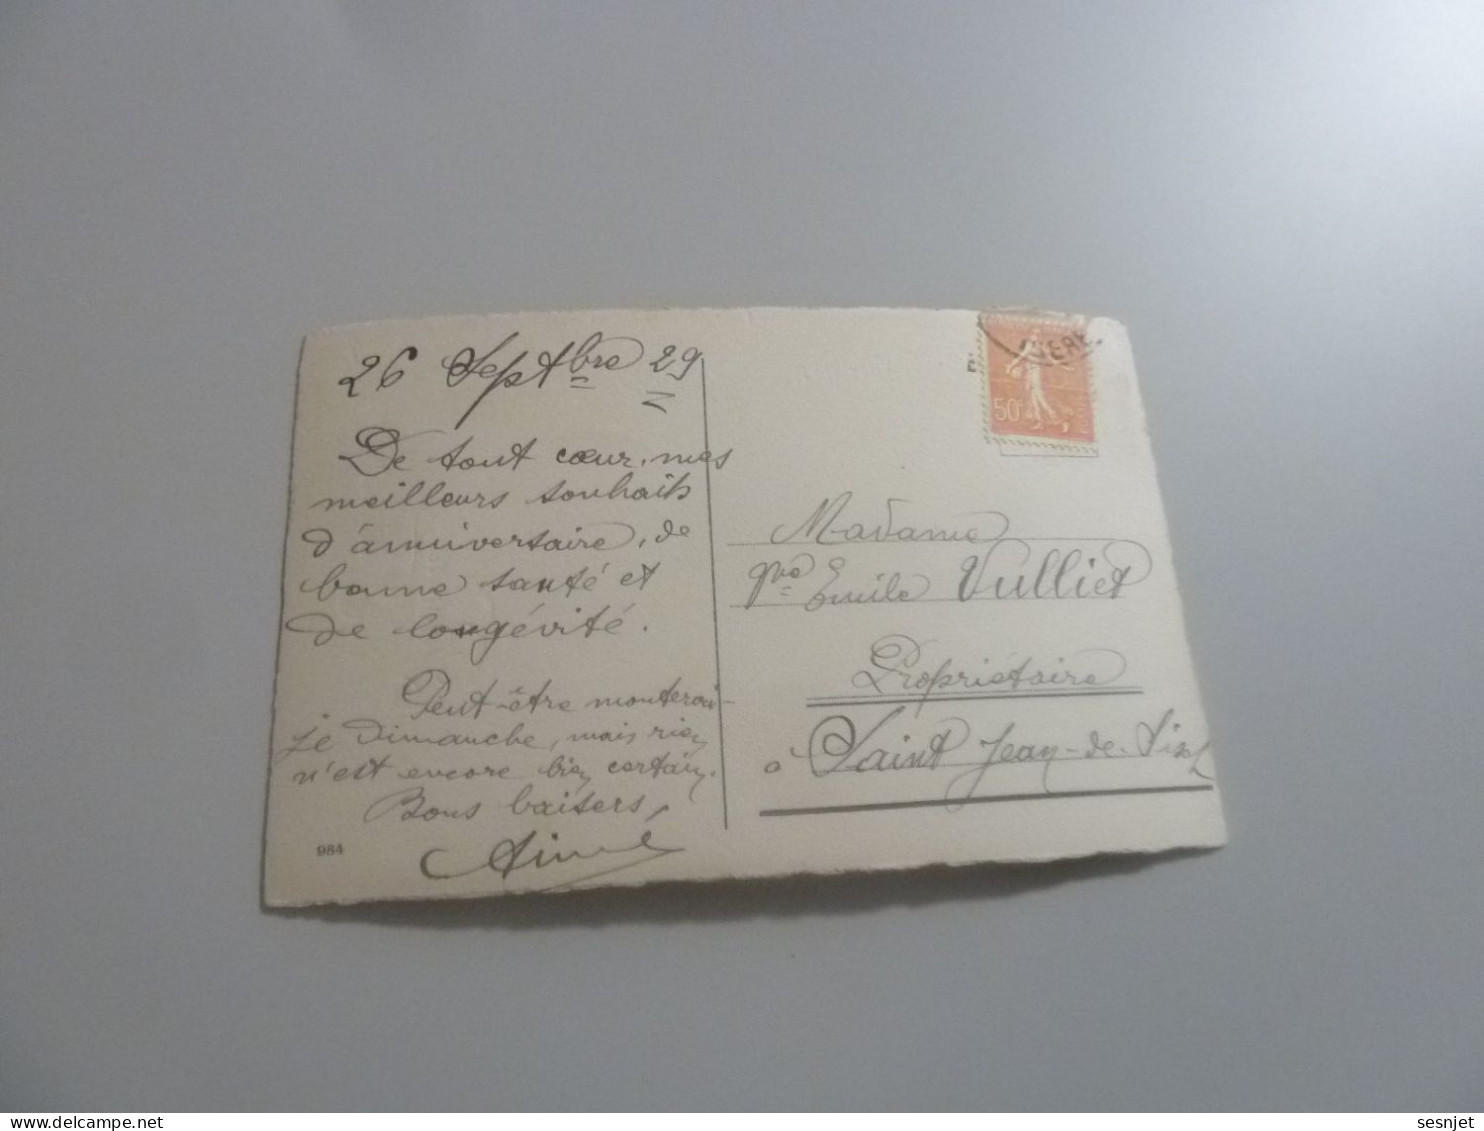 26 Septbre 29
De tout cœur, mes
meilleurs souhaits
d'anniversaire, de
bonne santé et
de longévité.
Peut-être monterai-
je Dimanche, mais rien
n'est encore bien certain.
Bons baisers,
Aimé
984
ISERE
50c
Madame
Vve Emile Vulliet
Propriétaire
à Saint Jean-de-
sesnjet